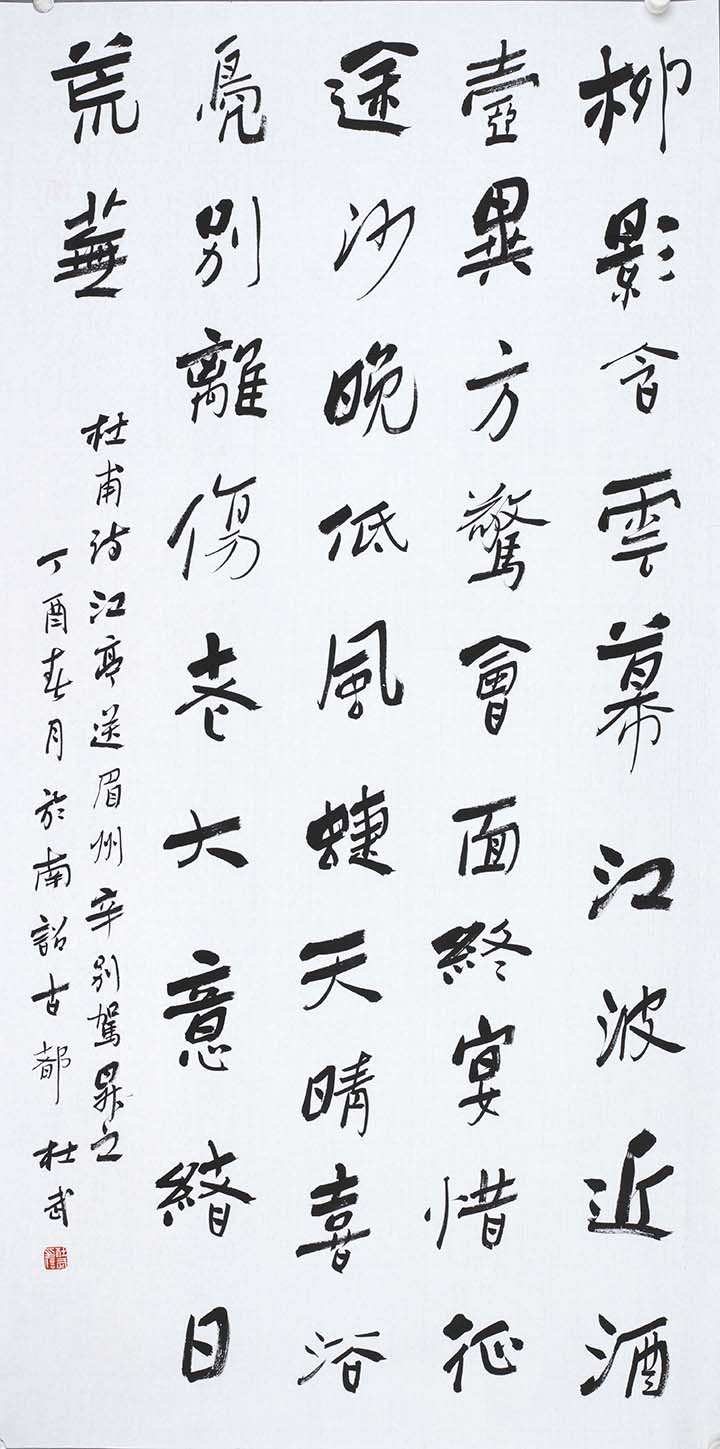 柳影含雲幕江波近酒
壺異方驚會面終宴惜征
途沙晚低風蜨天晴喜浴
鳧別離傷老大意緒日
荒蕪
杜甫诗江亭送眉州辛別駕昇之
丁酉春月於南詔古都 杜武